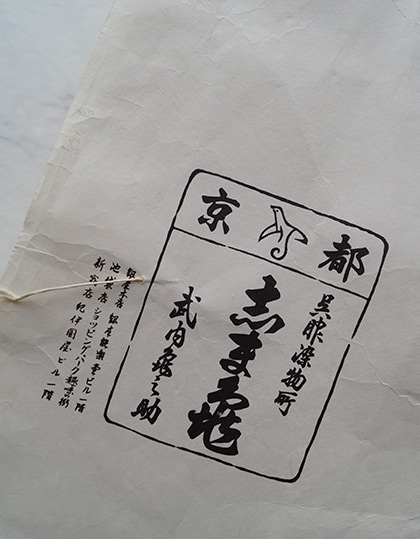 京都
呉服染物所
志ま亀
武内亀之助
銀座店 銀座能楽堂ビル一階
池袋店 ショツピングパーク
新宿店 紀伊國屋ビル一階